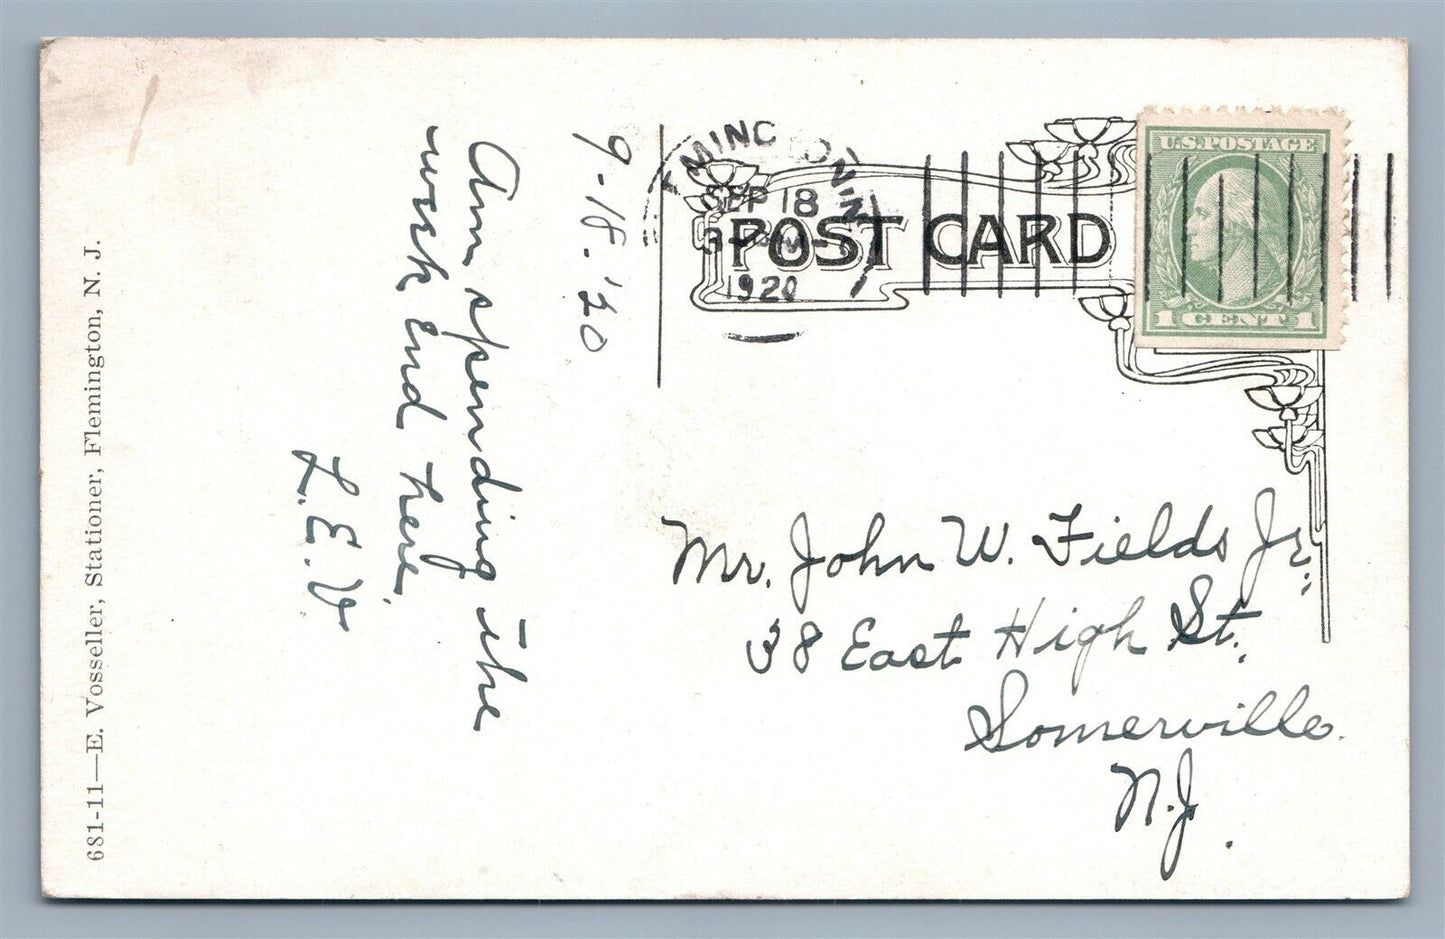 9-18-'20
Am spending the
week End here.
L.E.V
681-11—E. Vosseller, Stationer, Flemington, N. J.
POST CARD
SEP 18
1920
U.S. POSTAGE
1 CENT 1
Mr. John W. Fields Jr.
38 East High St.
Somerville
N.J.